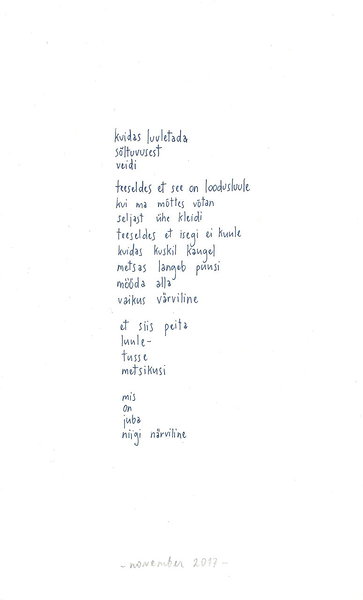 kuidas luuletada
sõltuvusest
veidi
teeseldes et see on loodusluule
kui ma mõttes võtan
seljast ühe kleidi
teeseldes et isegi ei kuule
kuidas kuskil kaugel
metsas langeb puusi
mööda alla
vaikus värviline
et siis peita
luule-
tusse
metsikusi
mis
on
juba
niigi närviline
- november 2017 -